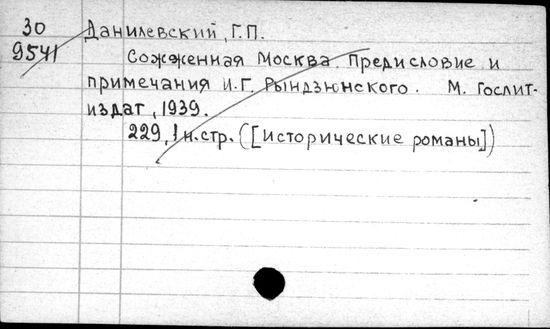 30 Данилевский, Г.П.
9541 Сожженная Москва. Предисловие и
примечания И.Г. Рындзюнского. М. Гослит-
издат, 1939.
229, 1 н.стр. ([исторические романы])